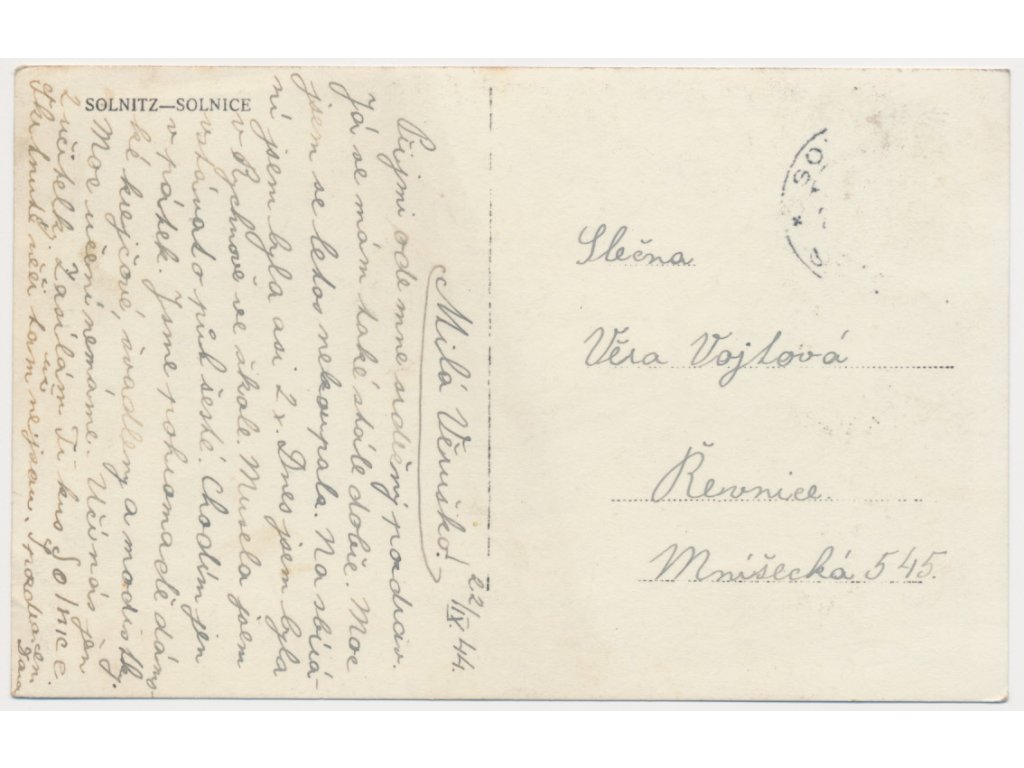 SOLNITZ—SOLNICE
22/IX 44.
Milá Věruško!
Přijmi ode mne srdečný pozdrav.
Já se mám také stále dobře. Moc
jsem se letos nekoupala. Na sbírá-
ní jsem byla asi 2x. Dnes jsem byla
v Rychnově ve škole. Musela jsem
vstávat o půl šesté. Chodím jen
v pátek. Jsme pohromadě dáms-
ké krejčové, švadleny a modistky.
Moc učení nemáme. Učí nás jen
2 učitelky. Zasílám Ti kus Solnice.
Skutnutí učni tam nejsou. S pozdravem
Slečna
Věra Vojtová
Řevnice.
Mníšecká 545.
SO